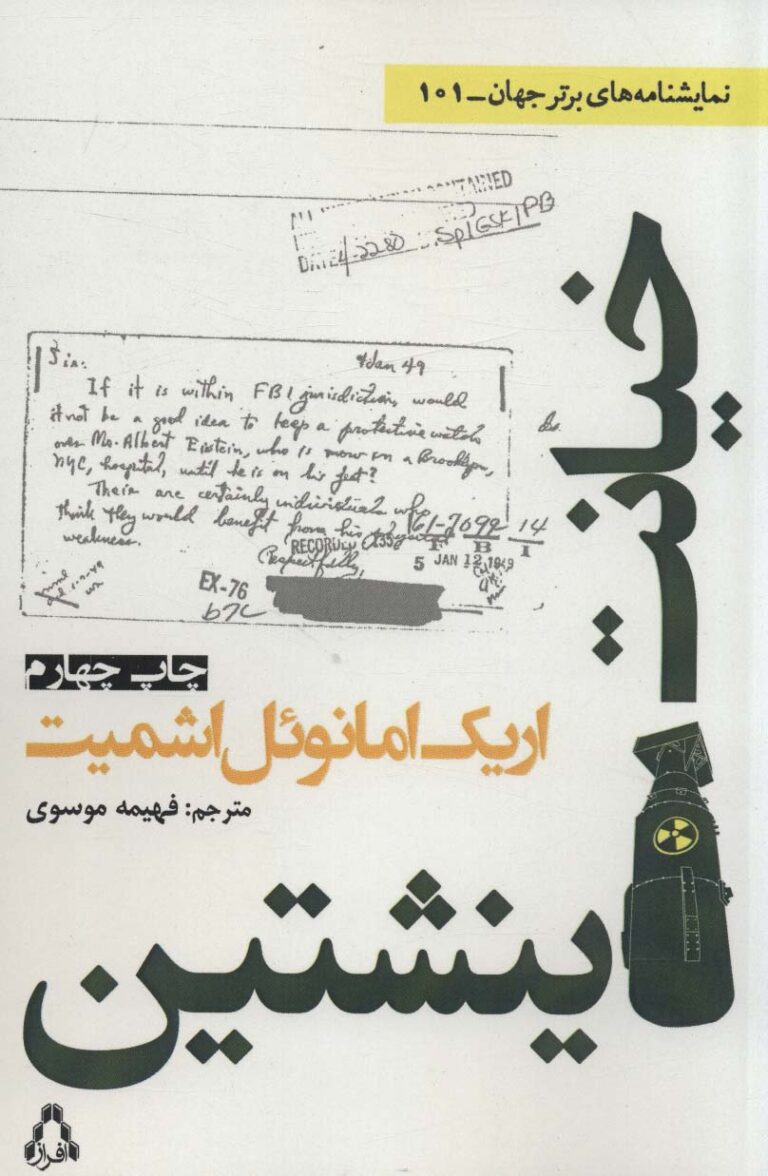 نمایشنامه‌های برتر جهان_۱۰۱
CONTAINED
DATE 4-22-80 Sp1GSK/PB
خیانت
Sir:
4 Jan 49
If it is within FBI jurisdiction, would
it not be a good idea to keep a protective watch
over Mr. Albert Eistein, who is now in a Brooklyn,
NYC, hospital, until he is on his feet?
Their are certainly individuals who
think they would benefit from his
weakness.
61-7099 14
RECORDED
5 JAN 12 1949
Respectfully,
EX-76
b7C
چاپ چهارم
اریک امانوئل اشمیت
مترجم: فهیمه موسوی
اینشتین
افراز